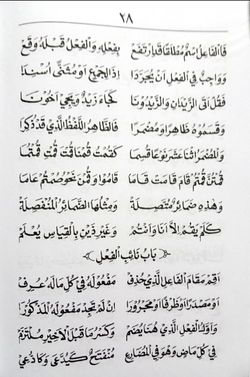 ٢٨
فَالْفَاعِلُ اسْمٌ مُطْلَقًا قَدِ ارْتَفَعْ بِفِعْلِهِ وَالْفِعْلُ قَبْلَهُ وَقَعْ
وَوَاجِبٌ فِي الْفِعْلِ أَنْ يُجَرَّدَا إِذَا لِجَمْعٍ أَوْ مُثَنًّى أُسْنِدَا
فَقُلْ أَتَى الزَّيْدَانِ وَالزَّيْدُونَا كَجَاءَ زَيْدٌ وَيَجِيْ أَخُوْنَا
وَقَسَّمُوْهُ ظَاهِرًا وَمُضْمَرَا فَالظَّاهِرُ اللَّفْظُ الَّذِيْ قَدْ ذُكِرَا
وَالْمُضْمَرُ اثْنَا عَشَرَ نَوْعًا قُسِمَا كَقُمْتُ قُمْنَا قُمْتَ قُمْتِ قُمْتُمَا
قُمْتُنَّ قُمْتُمْ قَامَ قَامَتْ قَامَا قَامُوْا وَقُمْنَ نَحْوُ صُمْتُمْ عَامَا
وَهٰذِهِ ضَمَائِرٌ مُتَّصِلَةْ وَمِثْلُهَا الضَّمَائِرُ الْمُنْفَصِلَةْ
كَلَمْ يَقُمْ إِلَّا أَنَا وَأَنْتُمُ وَغَيْرُ ذَيْنِ بِالْقِيَاسِ يُعْلَمُ
﴿ بَابُ نَائِبِ الْفِعْلِ ﴾
أَقِمْ مَقَامَ الْفَاعِلِ الَّذِيْ حُذِفْ مَفْعُوْلَهُ فِيْ كُلِّ مَا لَهُ عُرِفْ
أَوْ مَصْدَرًا أَوْ ظَرْفًا أَوْ مَجْرُوْرَا إِنْ لَمْ تَجِدْ مَفْعُوْلَهُ الْمَذْكُوْرَا
وَأَوَّلُ الْفِعْلِ الَّذِيْ هُنَا يُضَمْ وَكَسْرُ مَا قَبْلَ الْأَخِيْرِ مُلْتَزَمْ
فِيْ كُلِّ مَاضٍ وَهْوَ فِي الْمُضَارِعِ مُنْفَتِحٌ كَيُدَّعَى وَكَادُّعِيْ